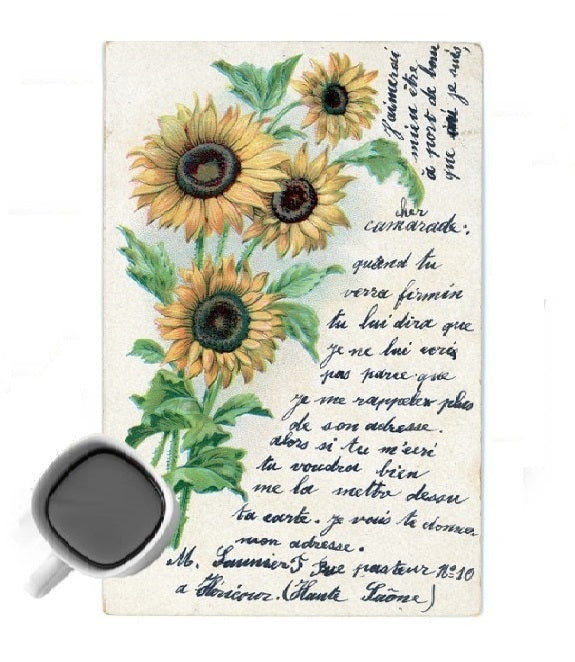 cher
camarade:
quand tu
verra firmin
tu lui dira que
je ne lui écris
pas parce que
je me rappelle plus
de son adresse.
alors si tu m'ecri
tu voudra bien
me la metre dessu
ta carte. je vais te donner
mon adresse.
M. Saunier rue pasteur N° 10
a Héricour. (Haute Saône)
j'aimerai
mieu être
à port de bouc
que ici je suis